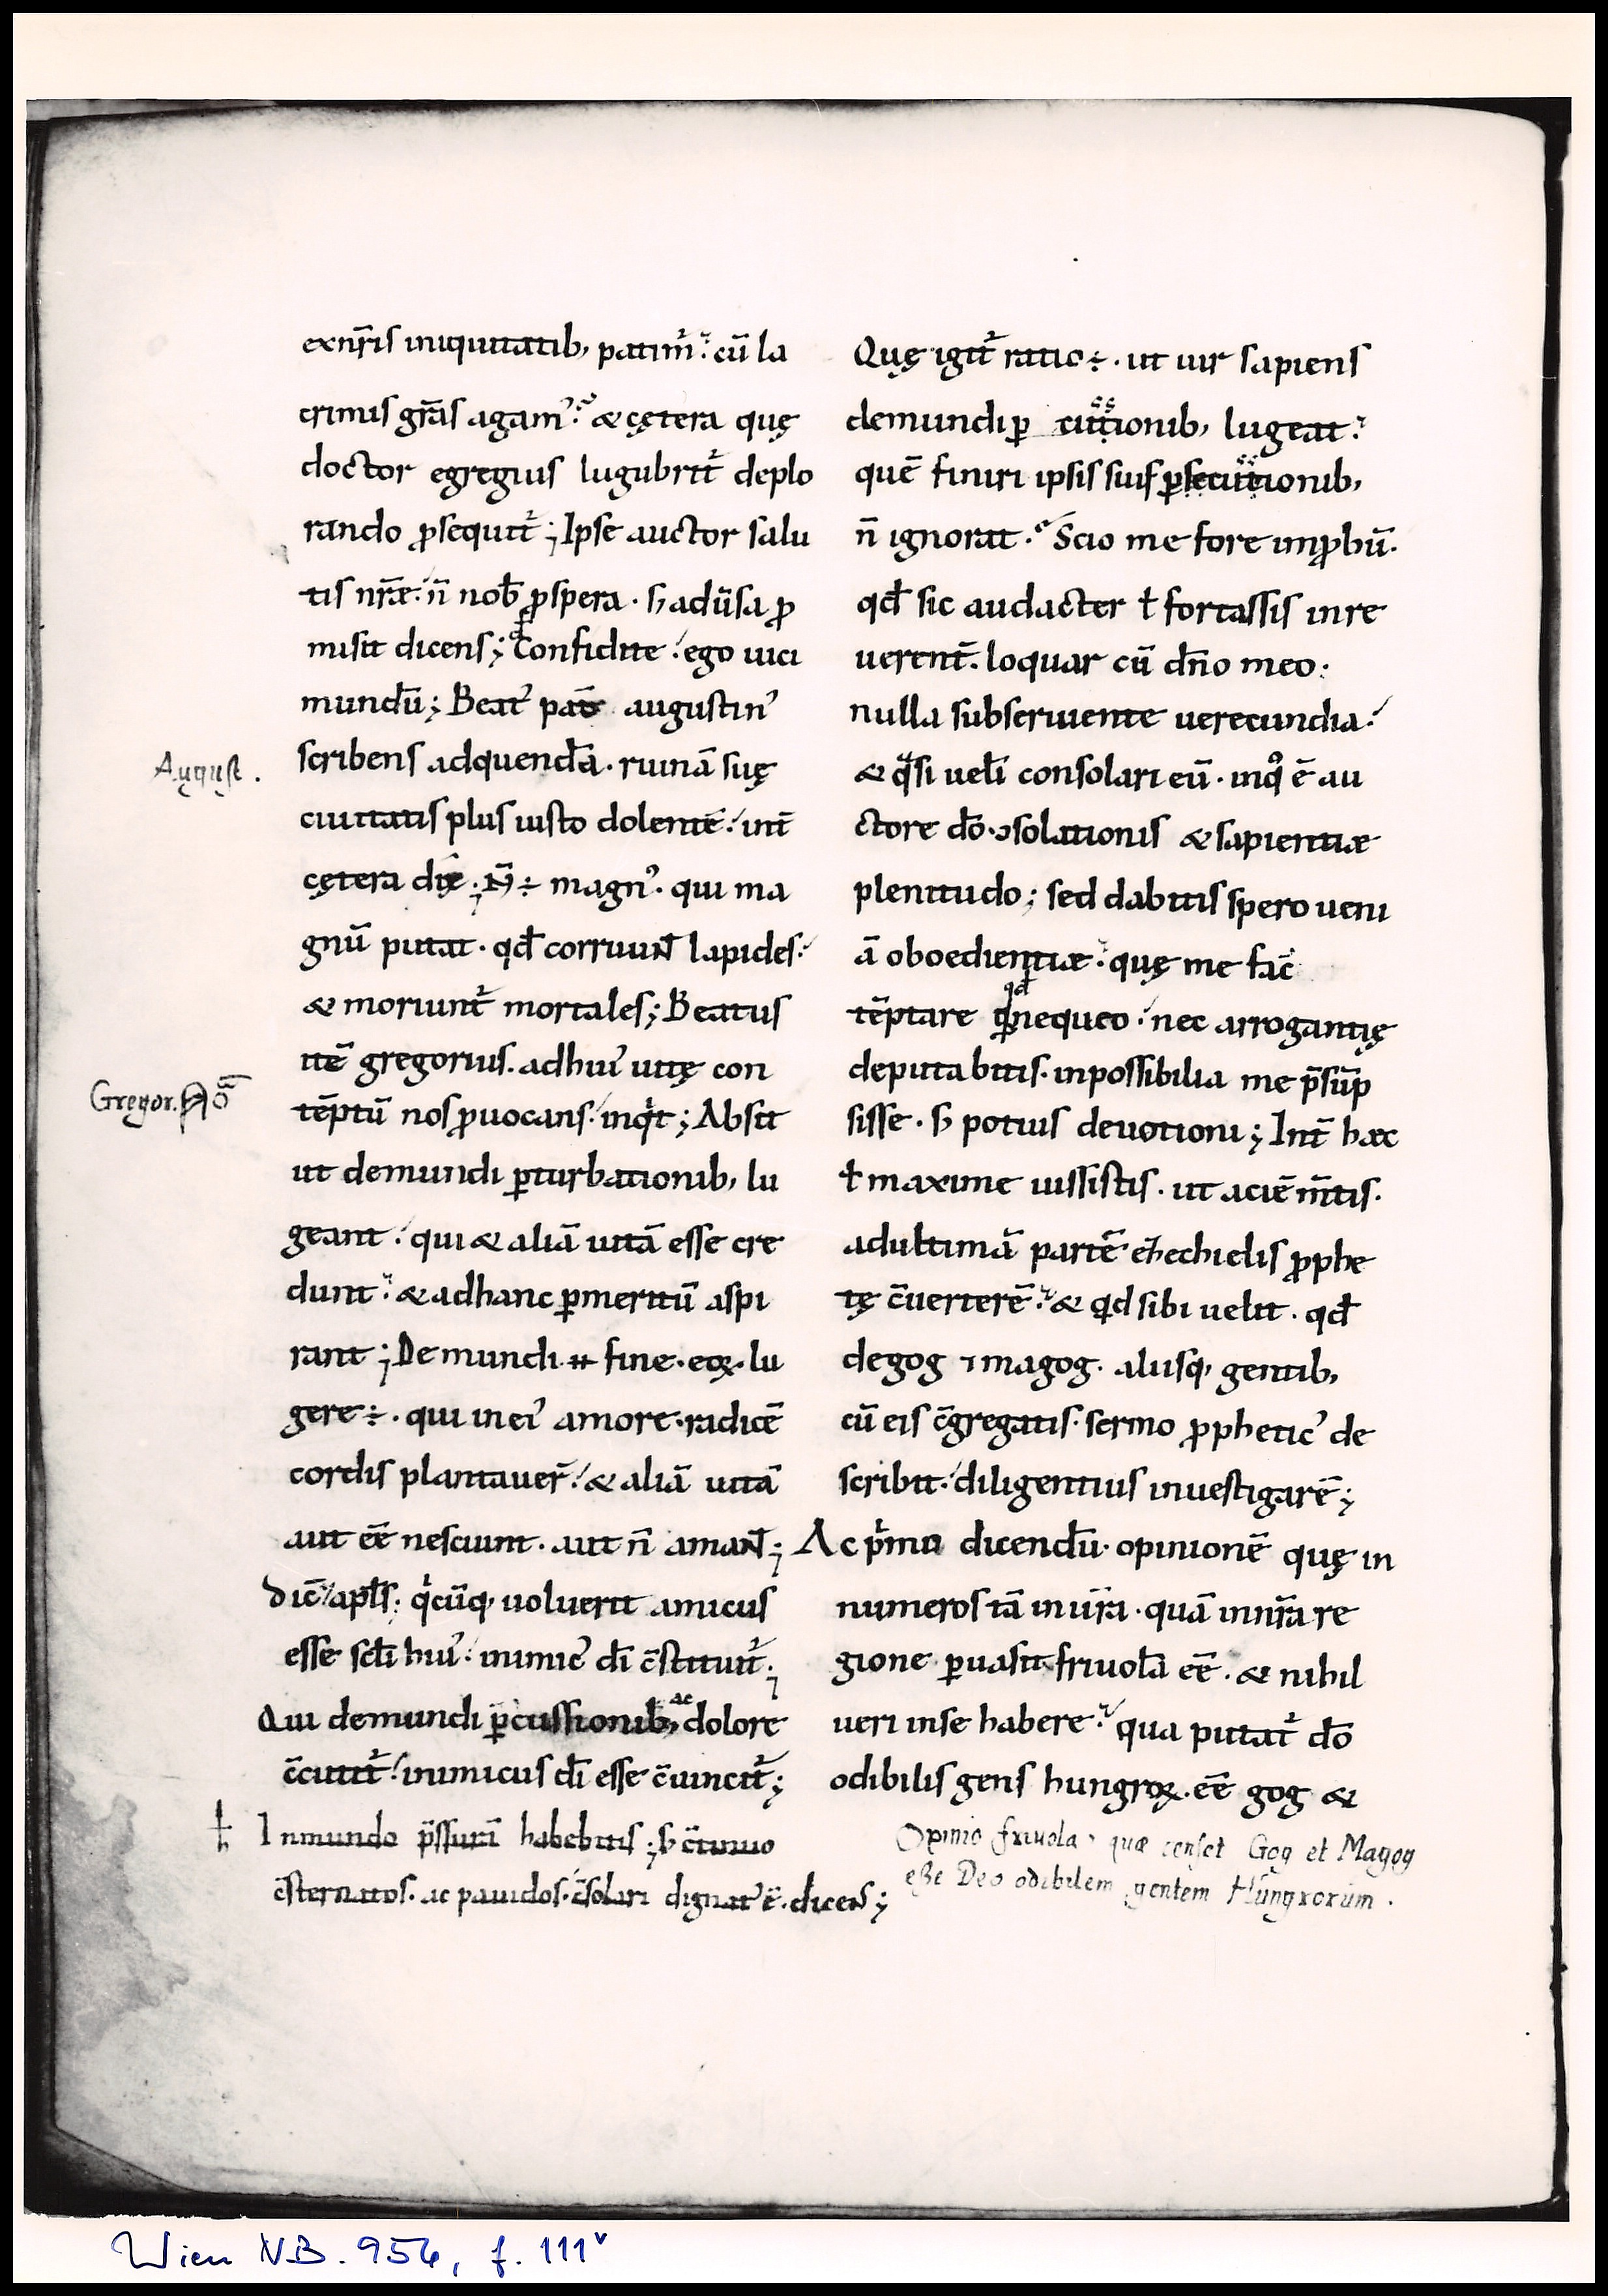 exnr̄is iniquitatib, patim᷒ cū la
crimis gr̄as agam᾽ & cętera quę
doctor egregius lugubrit̄ deplo
rando ꝓsequit᷒; Ipse auctor salu
tis nr̄æ. n̄ nob̄ ꝓspera. sꝫ adūsa ꝓ
misit dicens; Confidite. ego uici
mundū; Beat᾽ pat̄ augustin᾽
August.
scribens adquendā. ruinā suę
ciuitatis plus iusto dolentē. int̄
cętera dix̄; N̄ ÷ magn᾽. qui ma
gnū putat. qd̄ corruunt lapides.
& moriunt᷒ mortales; Beatus
itē gregorius. adhui᾽ uitę con
Gregor.
tēptū nos ꝓuocans. inqͥt; Absit
ut demundi ꝑturbationib, lu
geant. qui & aliā uitā esse cre
dunt. & adhanc ꝑmeritū aspi
rant; De mundi fine. eoꝝ. lu
gere ÷. qui in ei᾽ amore. radicē
cordis plantauer̄. & aliā uitā
aut eē nesciunt. aut n̄ amant;
Dic̄ apl̄s. qͥcūq, uoluerit amicus
esse scl̄i hui᾽. inimic᾽ dī c̄stituit᷒;
Qui demundi ꝑcussionib, ac dolore
c̄cutit᷒. inimicus dī esse c̄uincit᷒;
ł In mundo p̄ssurā habebitis; sꝫ c̄tinuo
c̄sternatos. ac pauidos. c̄solari dignat᾽ ē. dicens;
Quę igit᷒ ratio ÷. ut uir sapiens
demundi ꝑ cutionib, lugeat.
quē finiri ipsis suis ꝑsecutionib,
n̄ ignorat. Scio me fore inꝓbū.
qd̄ sic audacter ł fortassis inre
uerent̄. loquar cū dn̄o meo.
nulla subseruiente uerecundia.
& qͣsi uelī consolari eū. inqͦ ē au
ctore dō. ɔsolationis & sapientiæ
plenitudo; sed dabitis spero ueni
ā oboedientiæ. quę me fac̄
tēptare qd̄ nequeo. nec arrogantię
deputabitis. inpossibilia me p̄sūp
sisse. sꝫ potius deuotioni; Int̄ hæc
ł maxime iussistis. ut aciē m̄tis.
adultimā partē ezechielis ꝓphe
tę c̄uerterē. & qͥd sibi uelit. qd̄
degog ⁊ magog. aliisq, gentib,
cū eis c̄gregatis. sermo ꝓphetic᾽ de
scribit. diligentius inuestigarē;
Ac pͥmū dicendū. opinionē quę in
numeros tā in ur̄a. quā innr̄a re
gione ꝑuasit friuolā eē. & nihil
ueri inse habere. qua putat᷒ dō
odibilis gens hungroꝝ. eē gog &
Opinio friuola, quæ censet Gog et Magog
eße Deo odibilem gentem Hungrorum.
Wien N.B. 956, f. 111ᵛ